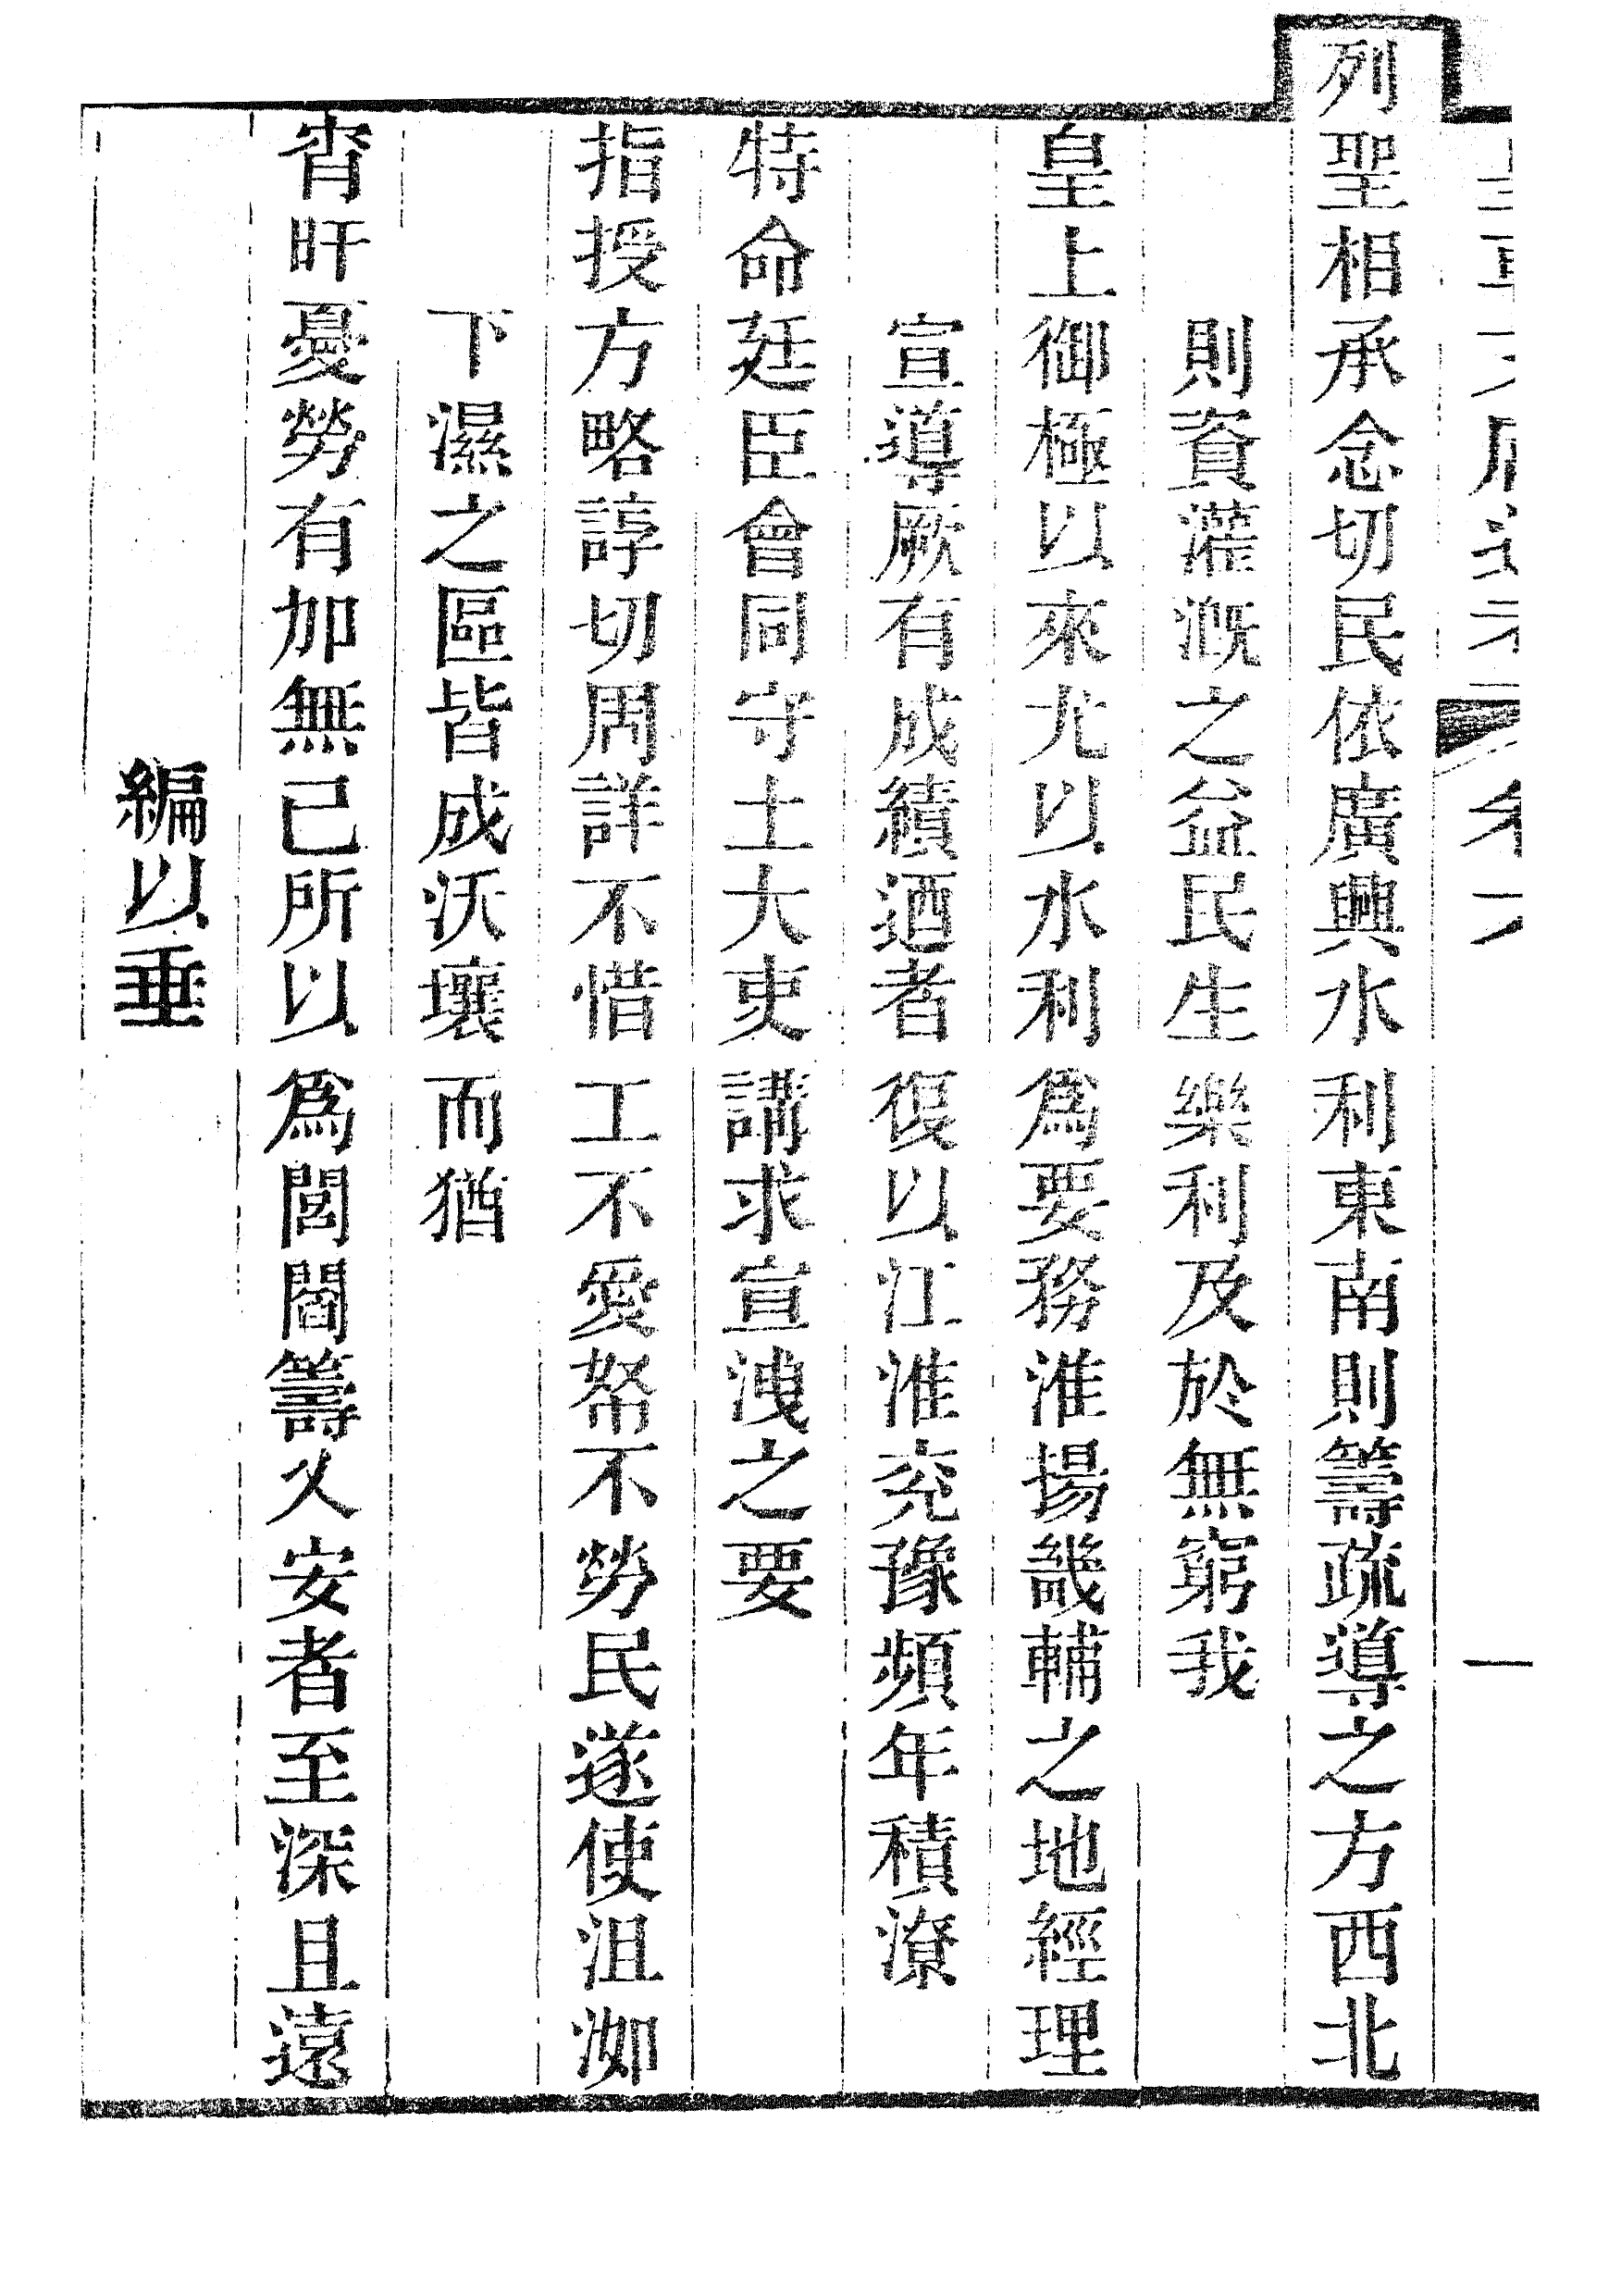 列聖相承念切民依廣興水利東南則籌疏導之方西北
則資灌漑之益民生樂利及於無窮我
皇上御極以來尤以水利爲要務淮揚畿輔之地經理
宣導厥有成績迺者復以江淮兖豫頻年積潦
特命廷臣會同守土大吏講求宣洩之要
指授方略諄切周詳不惜工不愛帑不勞民遂使沮洳
下濕之區皆成沃壤而猶
宵旰憂勞有加無已所以爲閭閻籌久安者至深且遠
編以垂